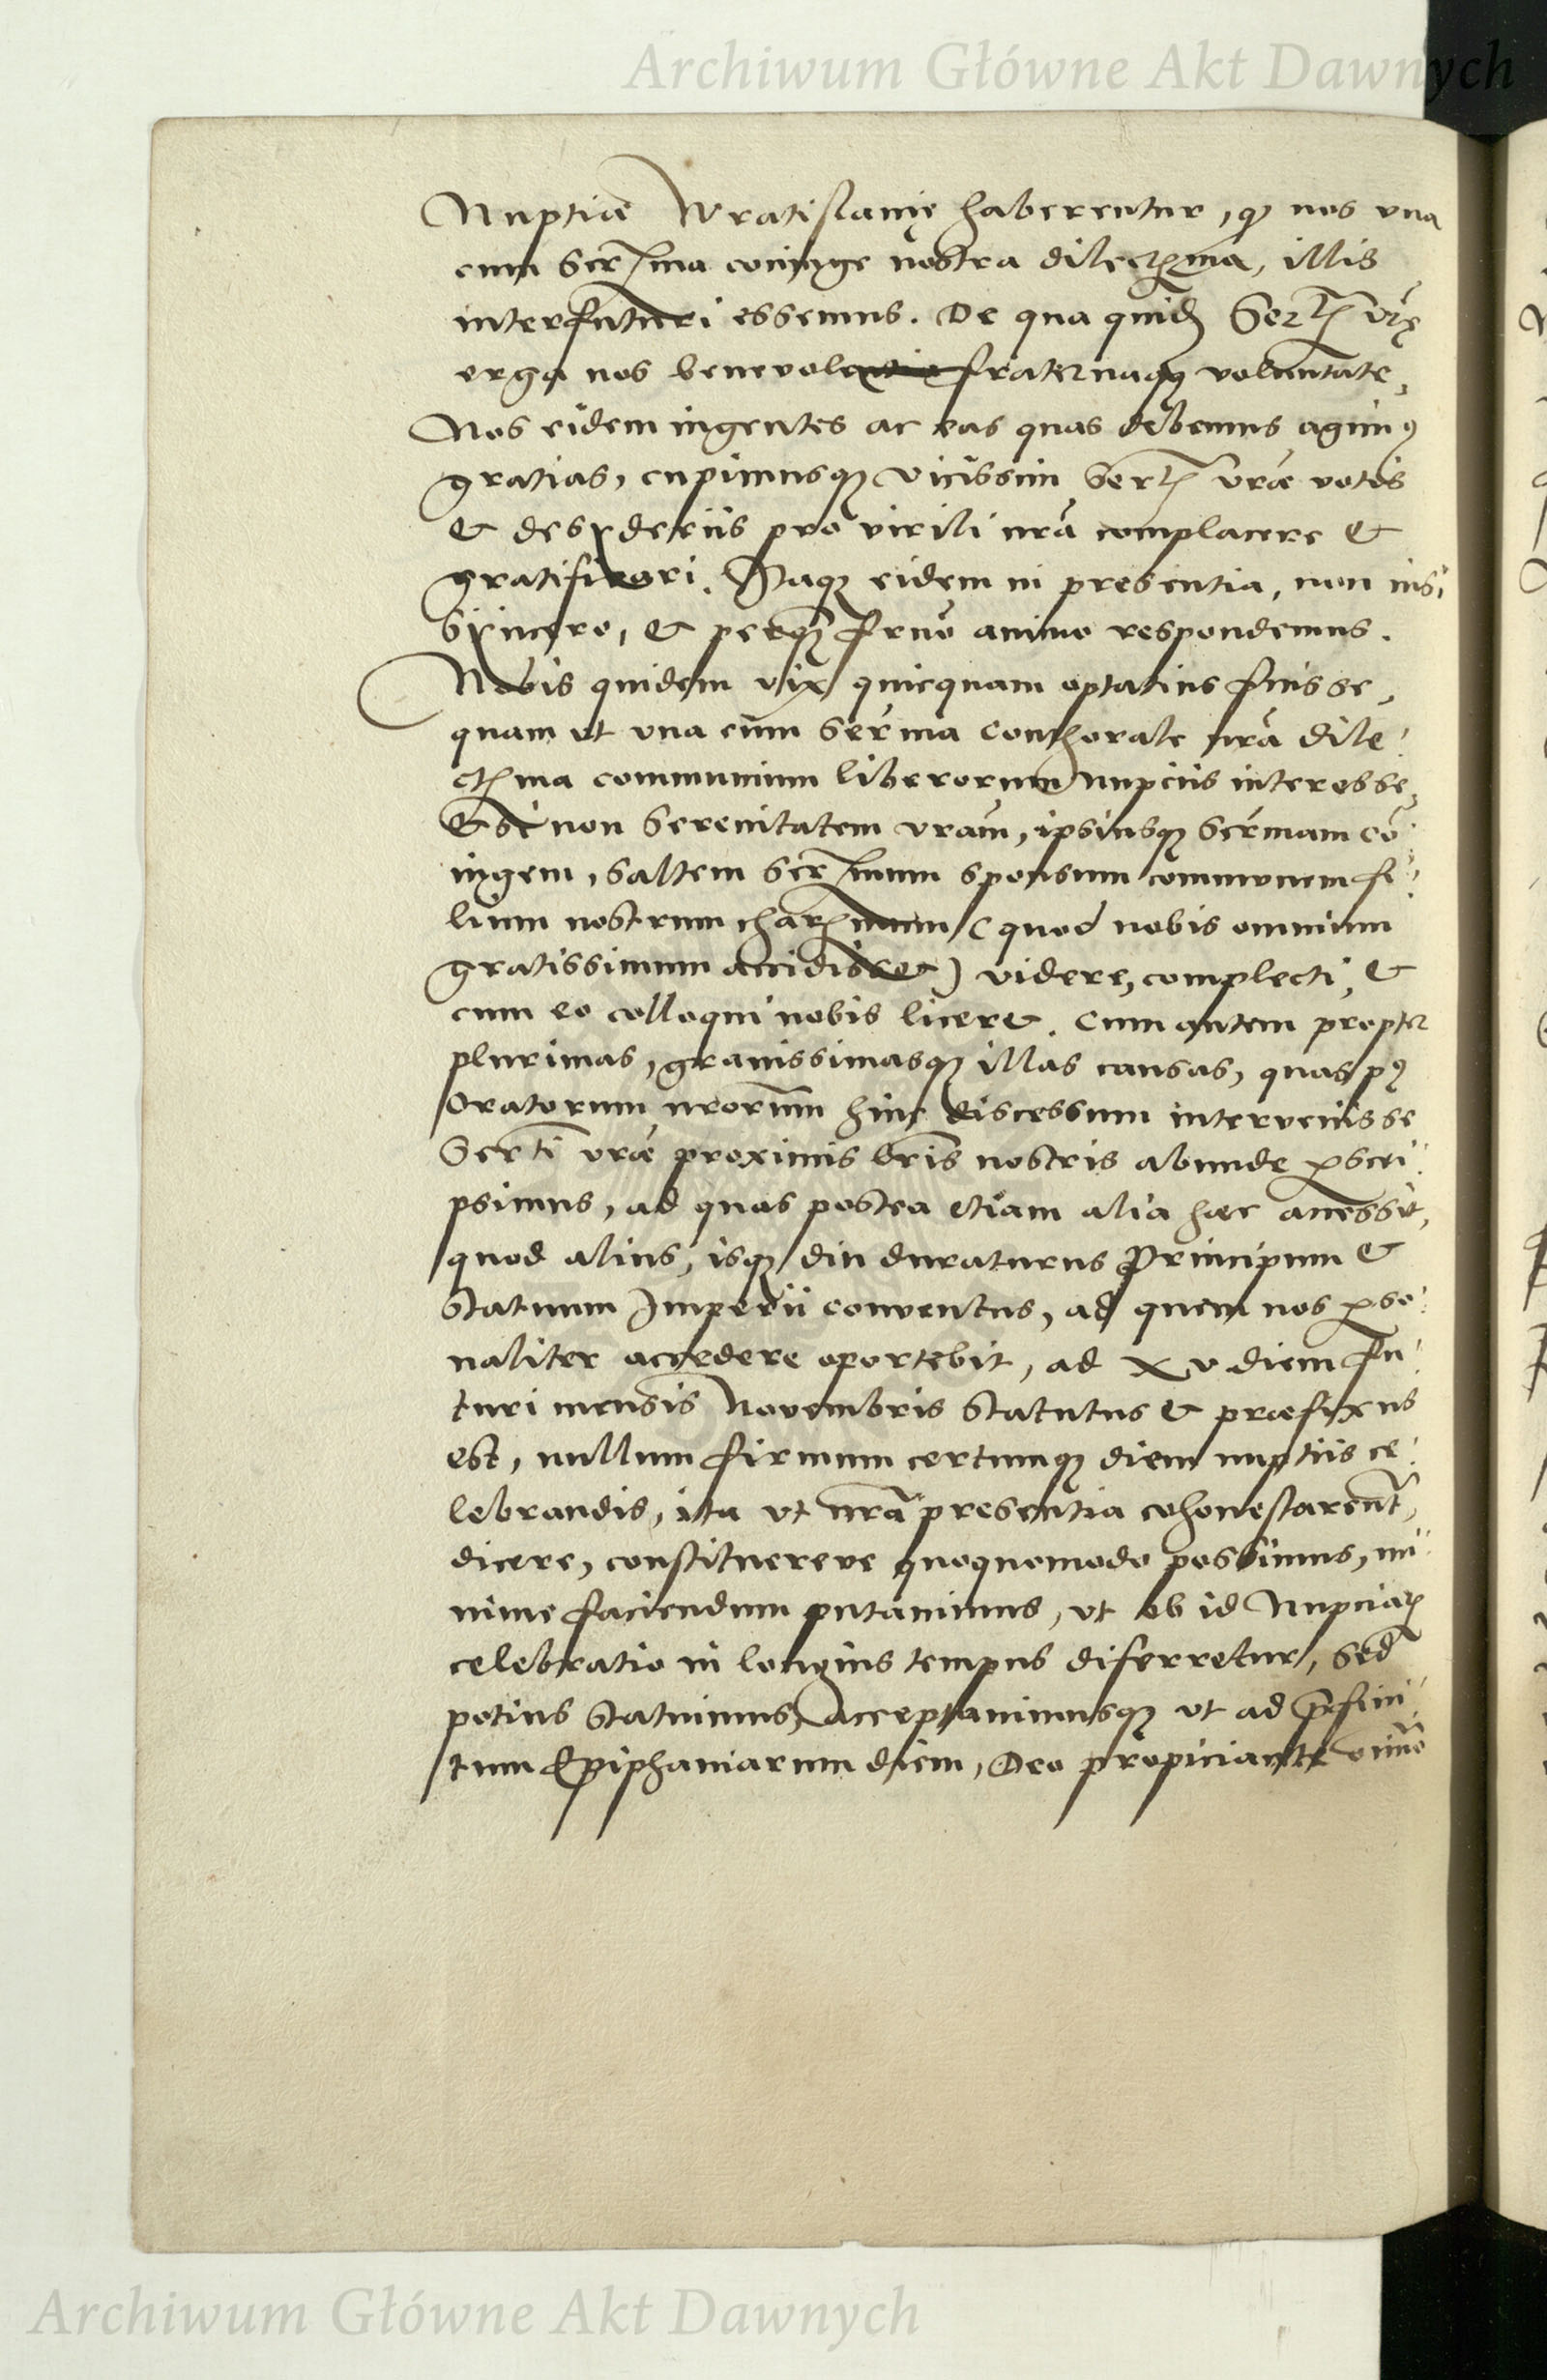 Archiwum Główne Akt Dawnych
Nuptiae Wratislauię haberentur, qꝫ nos vna
cum Serma coniuge nostra dilectma, illis
interfuturi essemus. De qua quidē Sertis vrę
erga nos beneuola fraternaqꝫ voluntate,
Nos eidem ingentes ac eas quas debemus agimꝰ
gratias, cupimusqꝫ vicissim Sertis vrae votis
& desyderiis pro virili nrā complacere &
gratificari. Itaqꝫ eidem in presentia, non nisi
syncero, & perqꝫ frno animo respondemus.
Nobis quidem vix quicquam optatius fuisse,
quam vt vna cum Serma Conthorale nrā dile-
ctma communium liberorum nupciis interesse,
& si non Serenitatem vram, ipsiusqꝫ Sermam co-
iugem, saltem Sermum sponsum communem fi-
lium nostrum charmum (quod nobis omnium
gratissimum accidisset) videre, complecti, &
cum eo colloqui nobis liceret. Cum autem propter
plurimas, grauissimasqꝫ illas causas, quas pꝰ
Oratorum nrorum hinc discessum interuenisse
Serti vrae proximis lris nostris abunde ꝑscri-
psimus, ad quas postea etiam alia haec accessit,
quod alius, isqꝫ diu duraturus Principum &
statuum Imperii conuentus, ad quem nos ꝑso-
naliter accedere oportebit, ad xv diem fu-
turi mensis Nouembris statutus & praefixus
est, nullum firmum certumqꝫ diem nuptiis ce-
lebrandis, ita vt nrā presentia cohonestarentr,
dicere, constituereue quoquomodo possimus, mi-
nime faciendum putauimus, vt ob id Nupciarꝫ
celebratio in longius tempus diferretur, sed
potius statuimus, Acceptauimusqꝫ vt ad prefini-
tum Epiphaniarum diem, Deo propiciante omno
Archiwum Główne Akt Dawnych